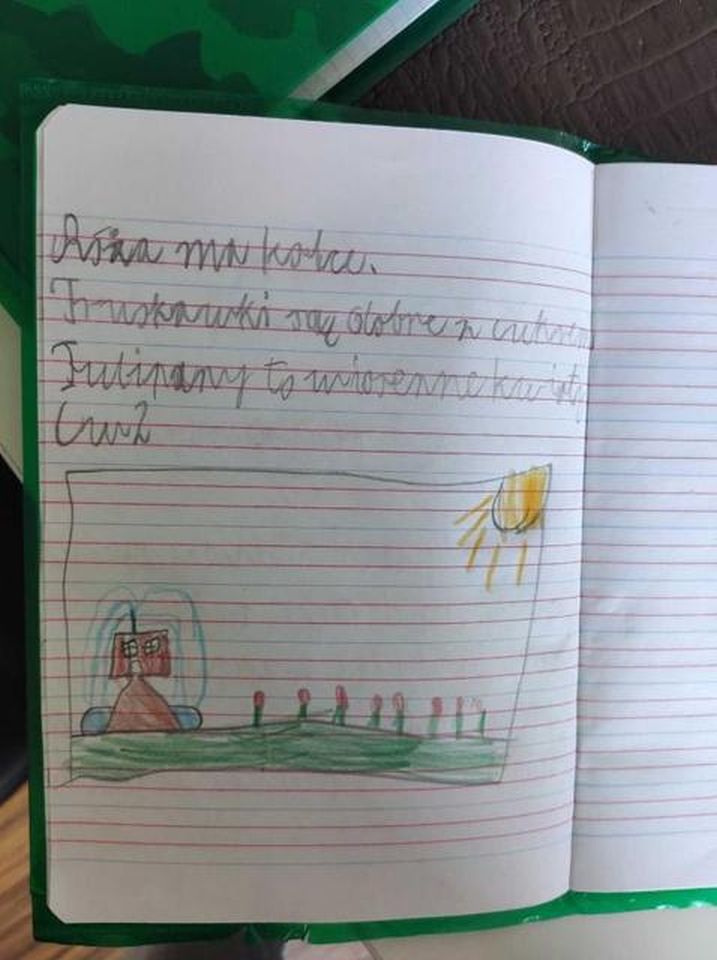 Róża ma kolce.
Truskawki są dobre z cukrem
Tulipany to wiosenne kwiaty
Ćw 2